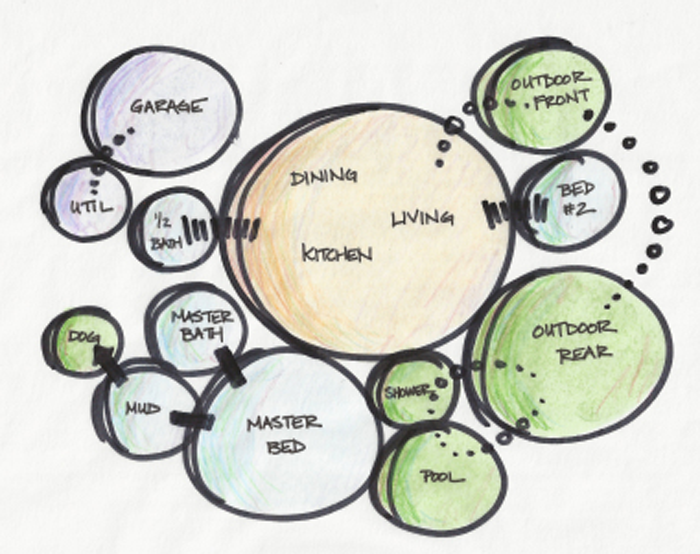 GARAGE
OUTDOOR
FRONT
UTIL
1/2
BATH
DINING
LIVING
KITCHEN
BED
#2
DOG
MASTER
BATH
MUD
MASTER
BED
SHOWER
OUTDOOR
REAR
POOL